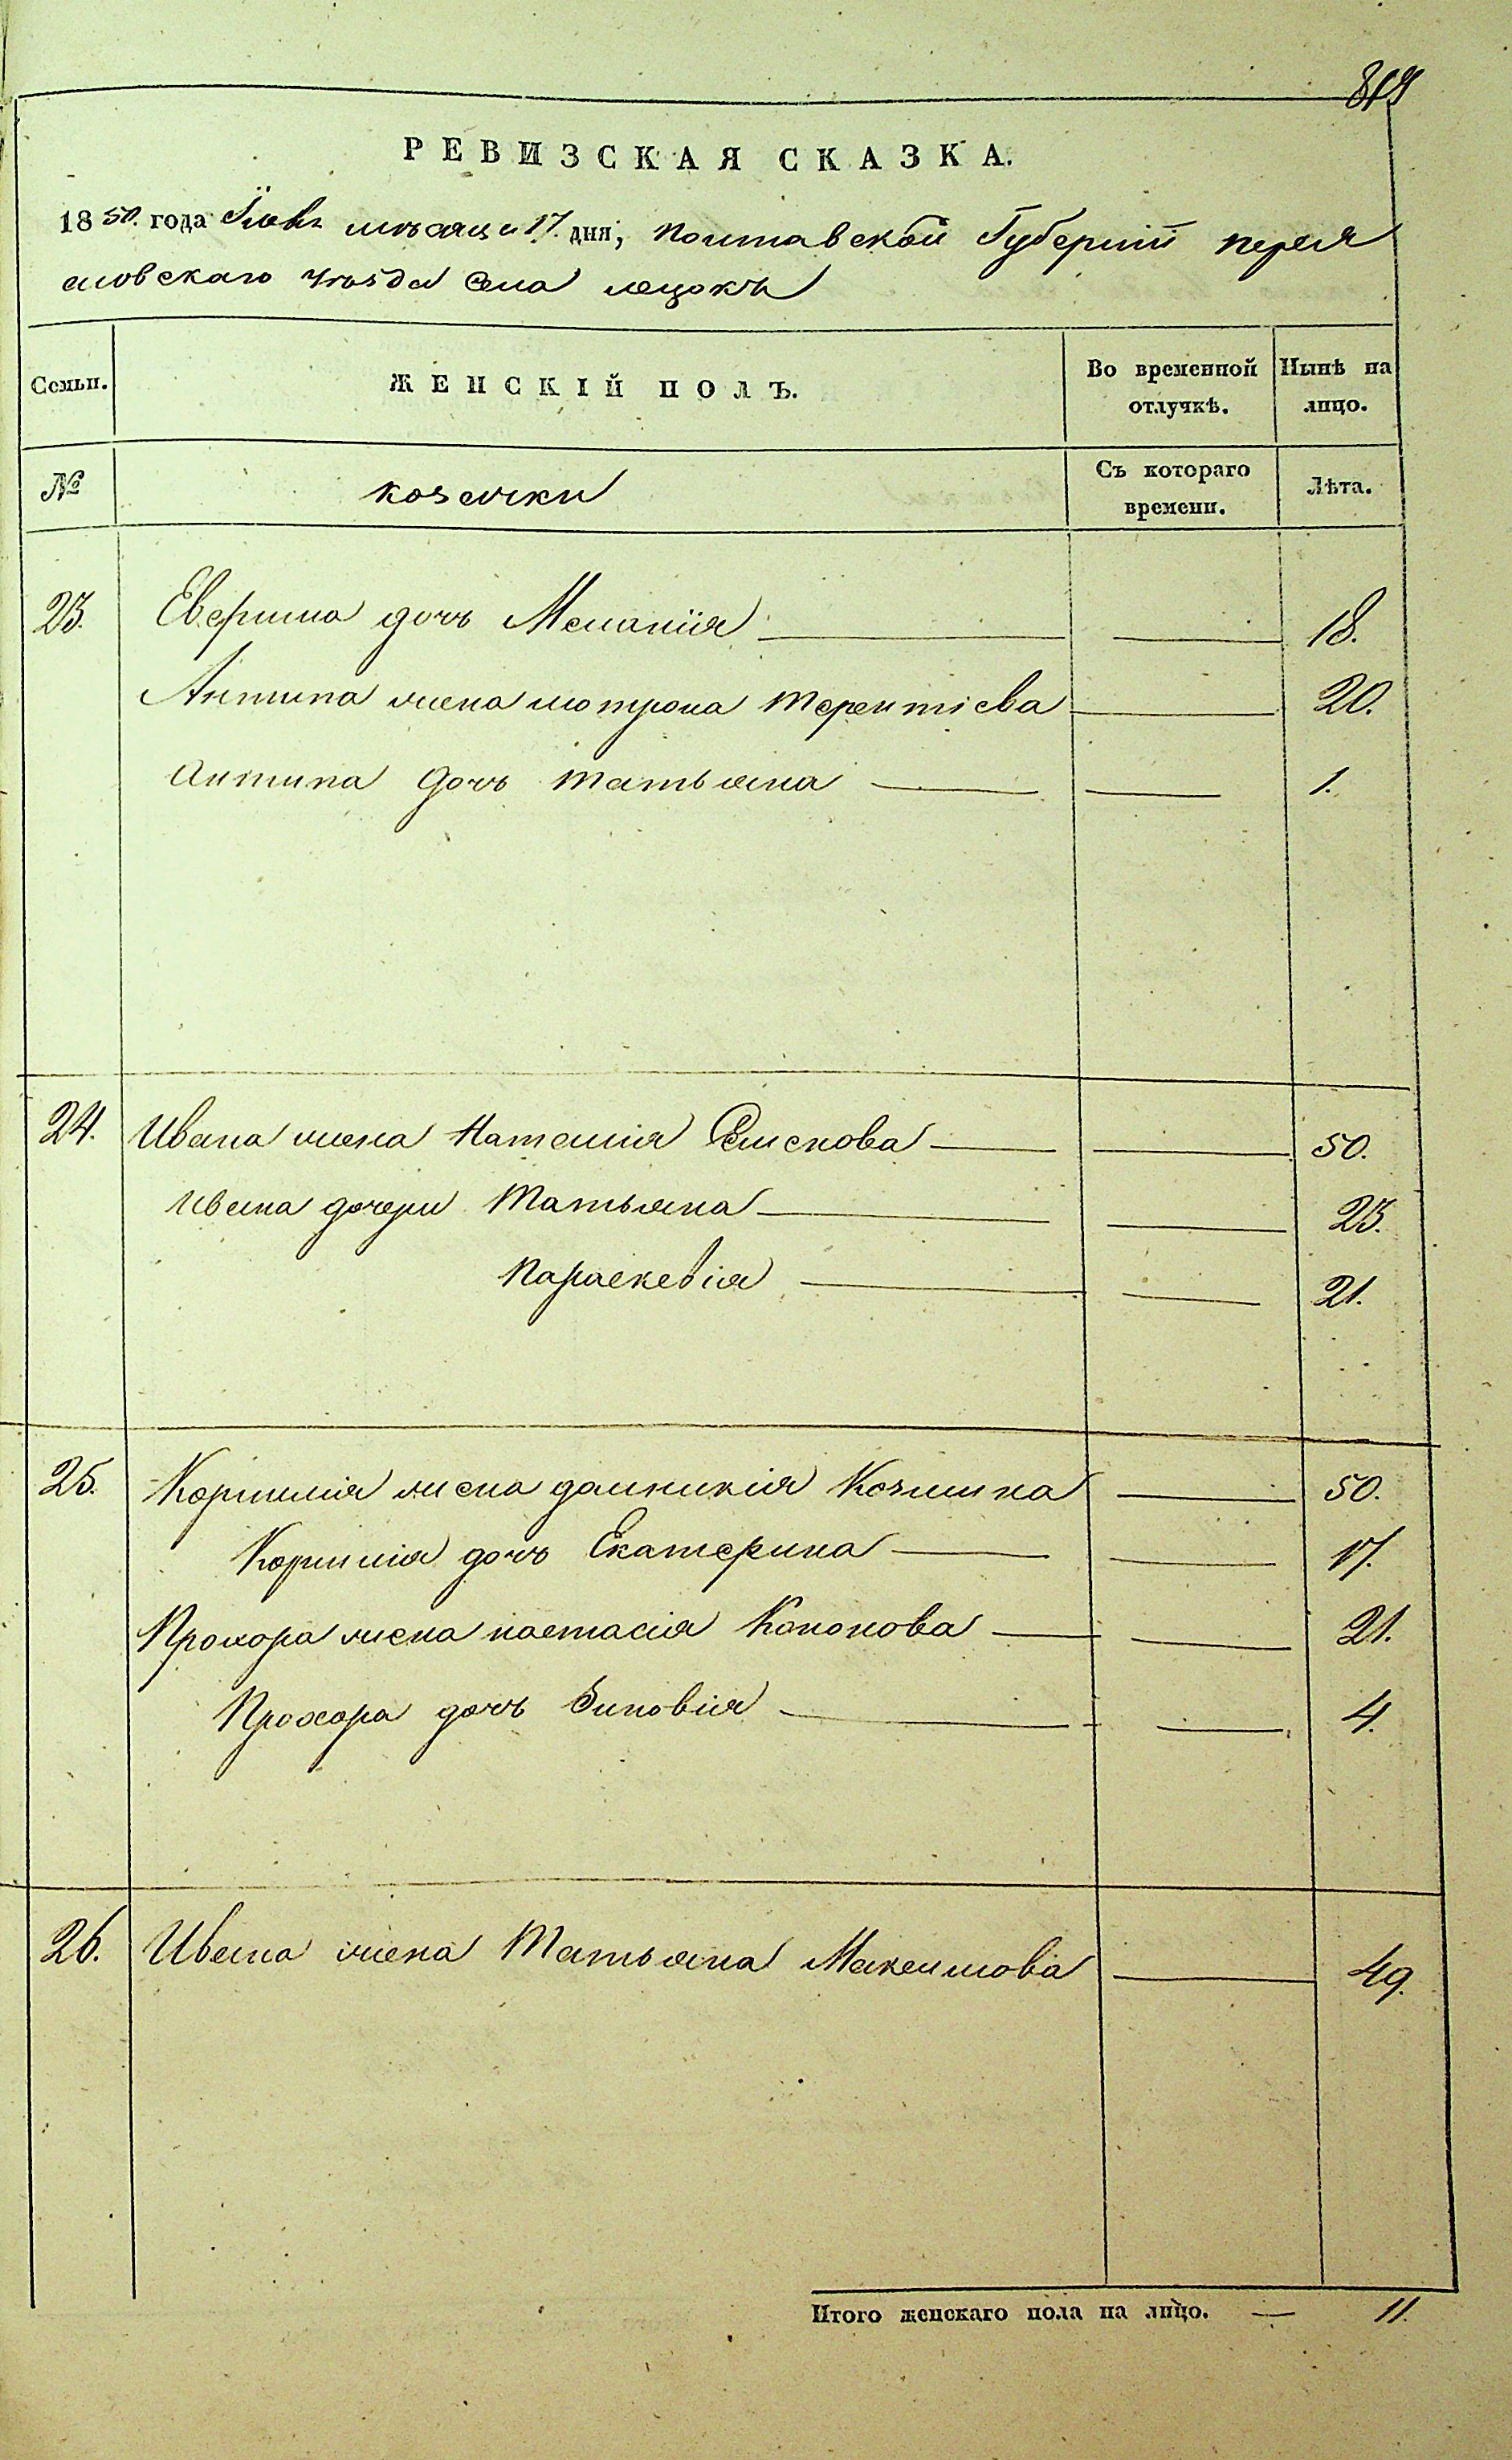 РЕВИЗСКАЯ СКАЗКА.
1850. года месяца 17. дня, Полтавской Губернїи перея
словскаго уѣзда Села лецокъ
Семьи.
ЖЕНСКІЙ ПОЛЪ.
Во временной отлучкѣ.
Нынѣ на лицо.
№
козачки
Съ котораго времени.
Лѣта.
23. дочь Меланїя 18.
Антипа жена мотрона терентіева 20.
антипа дочь татьяна 1.
24. Ивана жена Наталия Семенова 50.
Ивана дочери Татьяна 23.
Параскевія 21.
25. Корнилія жена домникія Козмина 50.
Корнилія дочь Екатерина 17.
Прохора жена настасія Кононова 21.
Прохора дочь Зиновія 4.
26. Ивана жена Татьяна Максимова 49.
Итого женскаго пола на лицо. — 11.